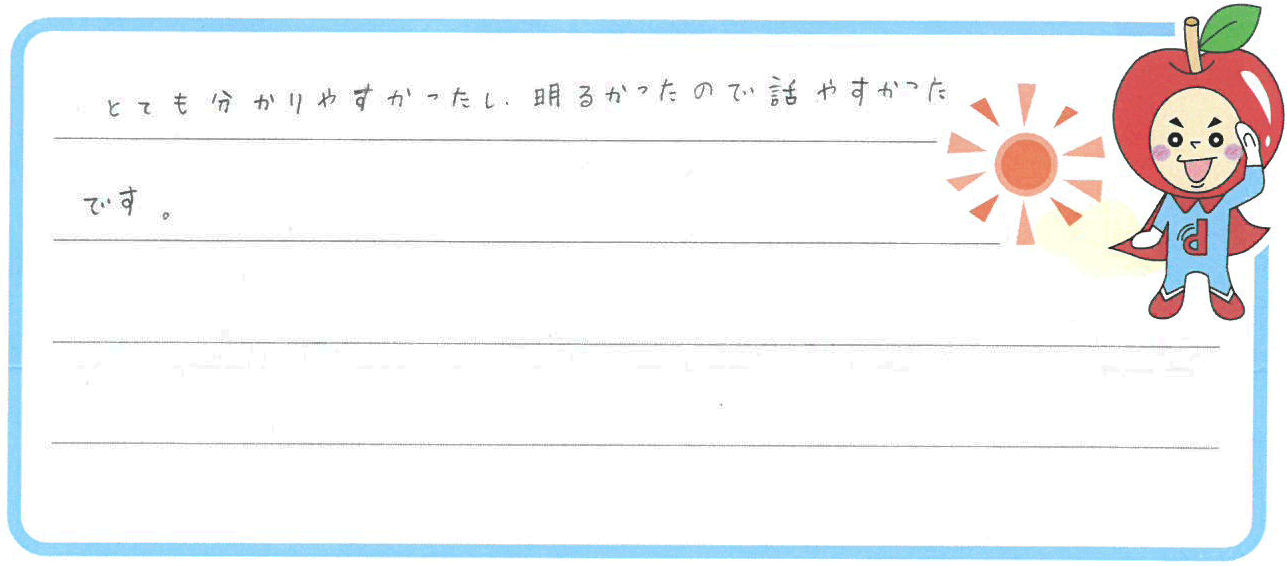 とても分かりやすかったし、明るかったので話やすかった
です。